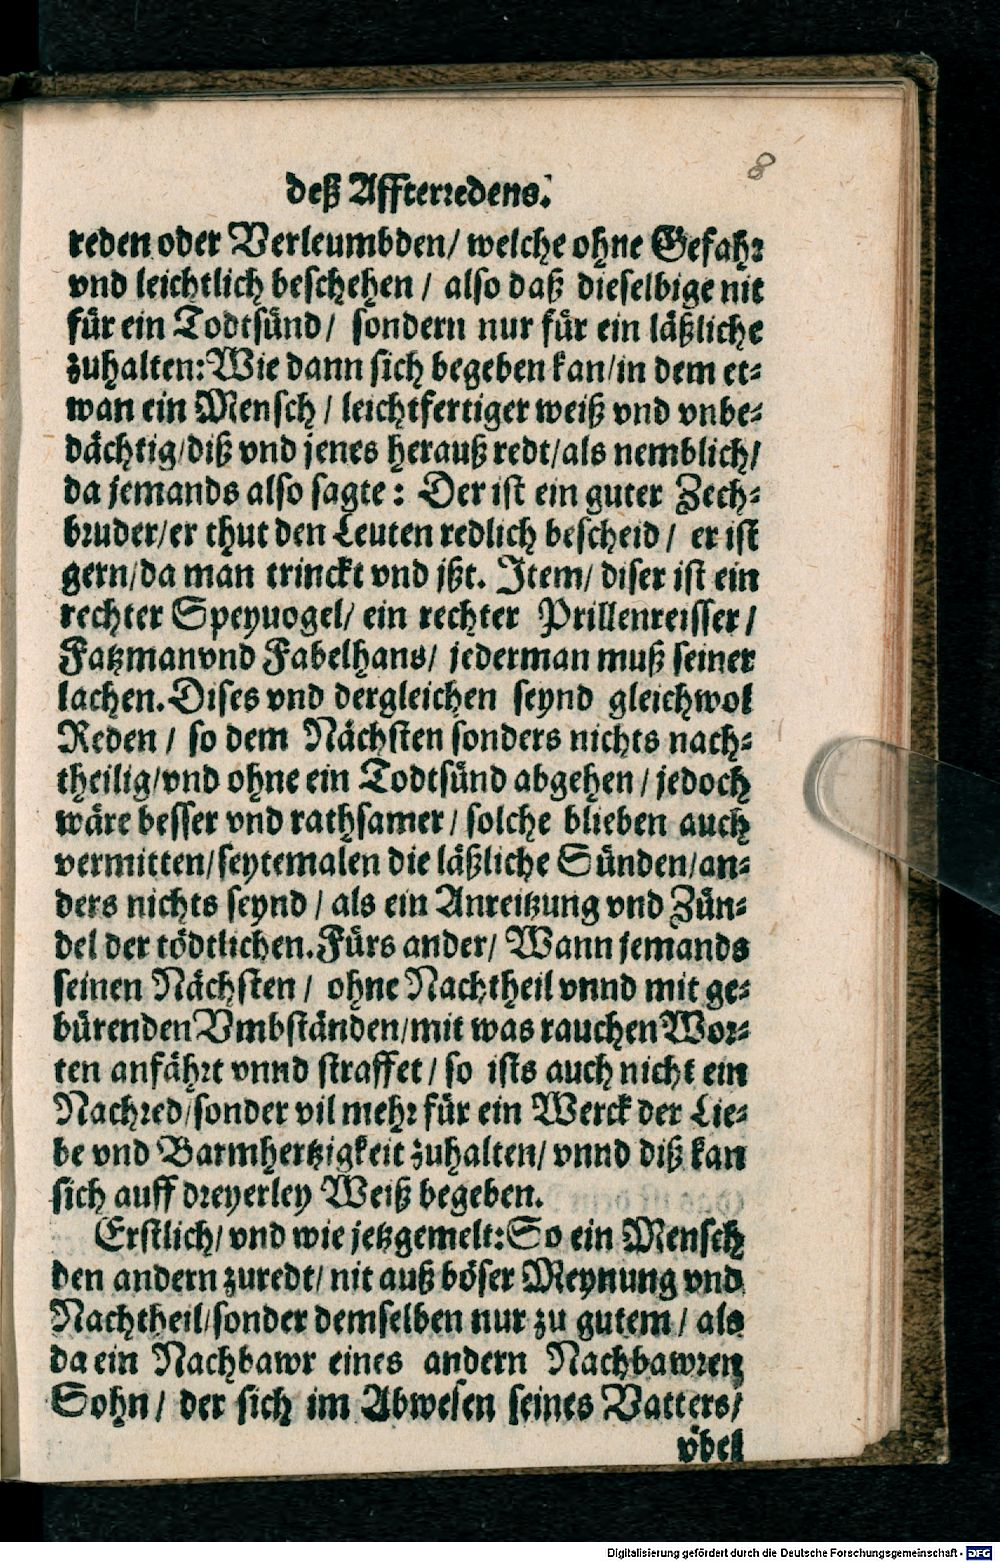 8
deß Affterredens.
reden oder Verleumbden/ welche ohne Gefahr
vnd leichtlich beschehen / also daß dieselbige nit
für ein Todtsünd/ sondern nur für ein läßliche
zuhalten: Wie dann sich begeben kan/in dem et-
wan ein Mensch / leichtfertiger weiß vnd vnbe-
dächtig/diß vnd jenes herauß redt/als nemblich/
da jemands also sagte: Der ist ein guter Zech-
bruder/er thut den Leuten redlich bescheid / er ist
gern/da man trinckt vnd jßt. Item/ diser ist ein
rechter Speyuogel/ ein rechter Prillenreisser /
Fatzman vnd Fabelhans/ jederman muß seiner
lachen. Dises vnd dergleichen seynd gleichwol
Reden / so dem Nächsten sonders nichts nach-
theilig/vnd ohne ein Todtsünd abgehen / jedoch
wäre besser vnd rathsamer / solche blieben auch
vermitten/seytemalen die läßliche Sünden/an-
ders nichts seynd / als ein Anreitzung vnd Zün-
del der tödtlichen. Fürs ander/ Wann jemands
seinen Nächsten / ohne Nachtheil vnnd mit ge-
bürenden Vmbständen/mit was rauchen Wor-
ten anfährt vnnd straffet / so ists auch nicht ein
Nachred/sonder vil mehr für ein Werck der Lie-
be vnd Barmhertzigkeit zuhalten/ vnnd diß kan
sich auff dreyerley Weiß begeben.
Erstlich/ vnd wie jetzgemelt: So ein Mensch
den andern zuredt/ nit auß böser Meynung vnd
Nachtheil/sonder demselben nur zu gutem / als
da ein Nachbawr eines andern Nachbawren
Sohn / der sich im Abwesen seines Vatters/
vbel
Digitalisierung gefördert durch die Deutsche Forschungsgemeinschaft - DFG